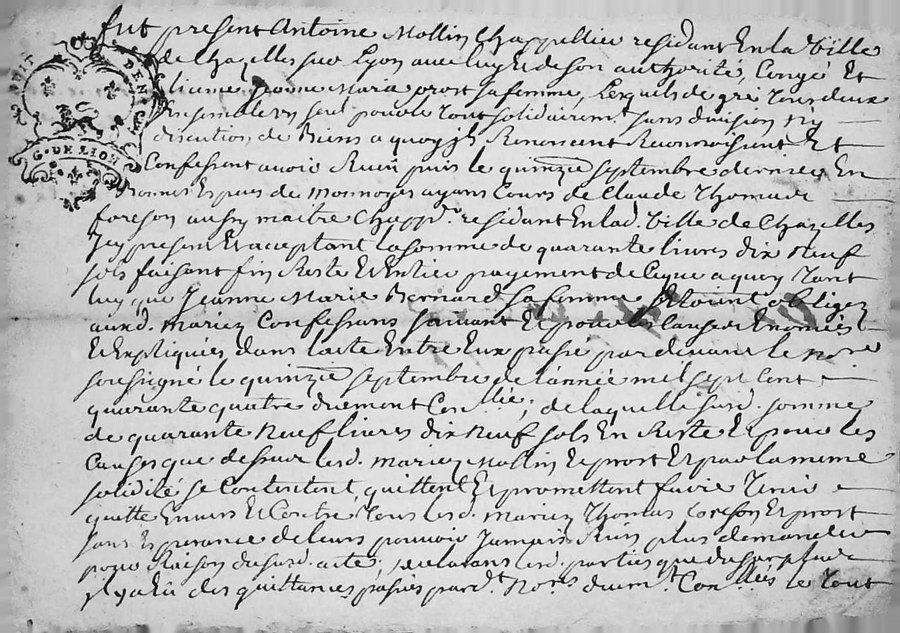 fut present Antoine Mollin Chappellier residant En la Ville
de Chazelles sur Lyon avec luy Et de son authorité, Congé Et
licence Jeanne Maria prost sa femme, Lesquels de gré tous deux
Ensemble Et un seul pour le tout solidairemt. sans division ny
discution de Biens a quoy ils Renoncent Reconnoissent Et
Confessent avoir Receu puis le quinzie septembre dernier En
bonnes Especes de monnoyes ayans Cours de Claude Thomas
foreson aussy maitre Chappr. residant En lad. Ville de Chazelles
Icy present Et acceptant la somme de quarante livres dix Neuf
sols faisant fin Reste Et Entier payement de Ce que a quoy tant
luy que Jeanne Marie Bernard sa femme s'etoient obligez
auxd. mariez Confessans suivant Et pour les Causes Enoncées
Et Expliquées dans l'acte Entre Eux passé par devant le nore
soussigné le quinzie septembre de l'année mil sept Cent
quarante quatre duement Conllé ; de laquelle susd. somme
de quarante Neuf livres dix Neuf sols En Reste Et pour les
Causes que dessus lesd. mariez Mollin Et prost Et par la meme
solidité se Contentent, quittent Et promettent faire tenir
quitte Envers Et Contre tous lesd. mariez Thomas foreson Et prost
sans Esperance de leurs pouvoir Jamais Rien plus demander
pour Raison dusd. acte ; declarans lesd. parties que dessus plus
il y a Eu des quittances passées pard. Nores duemt. Conllées le tout
G. DE LION